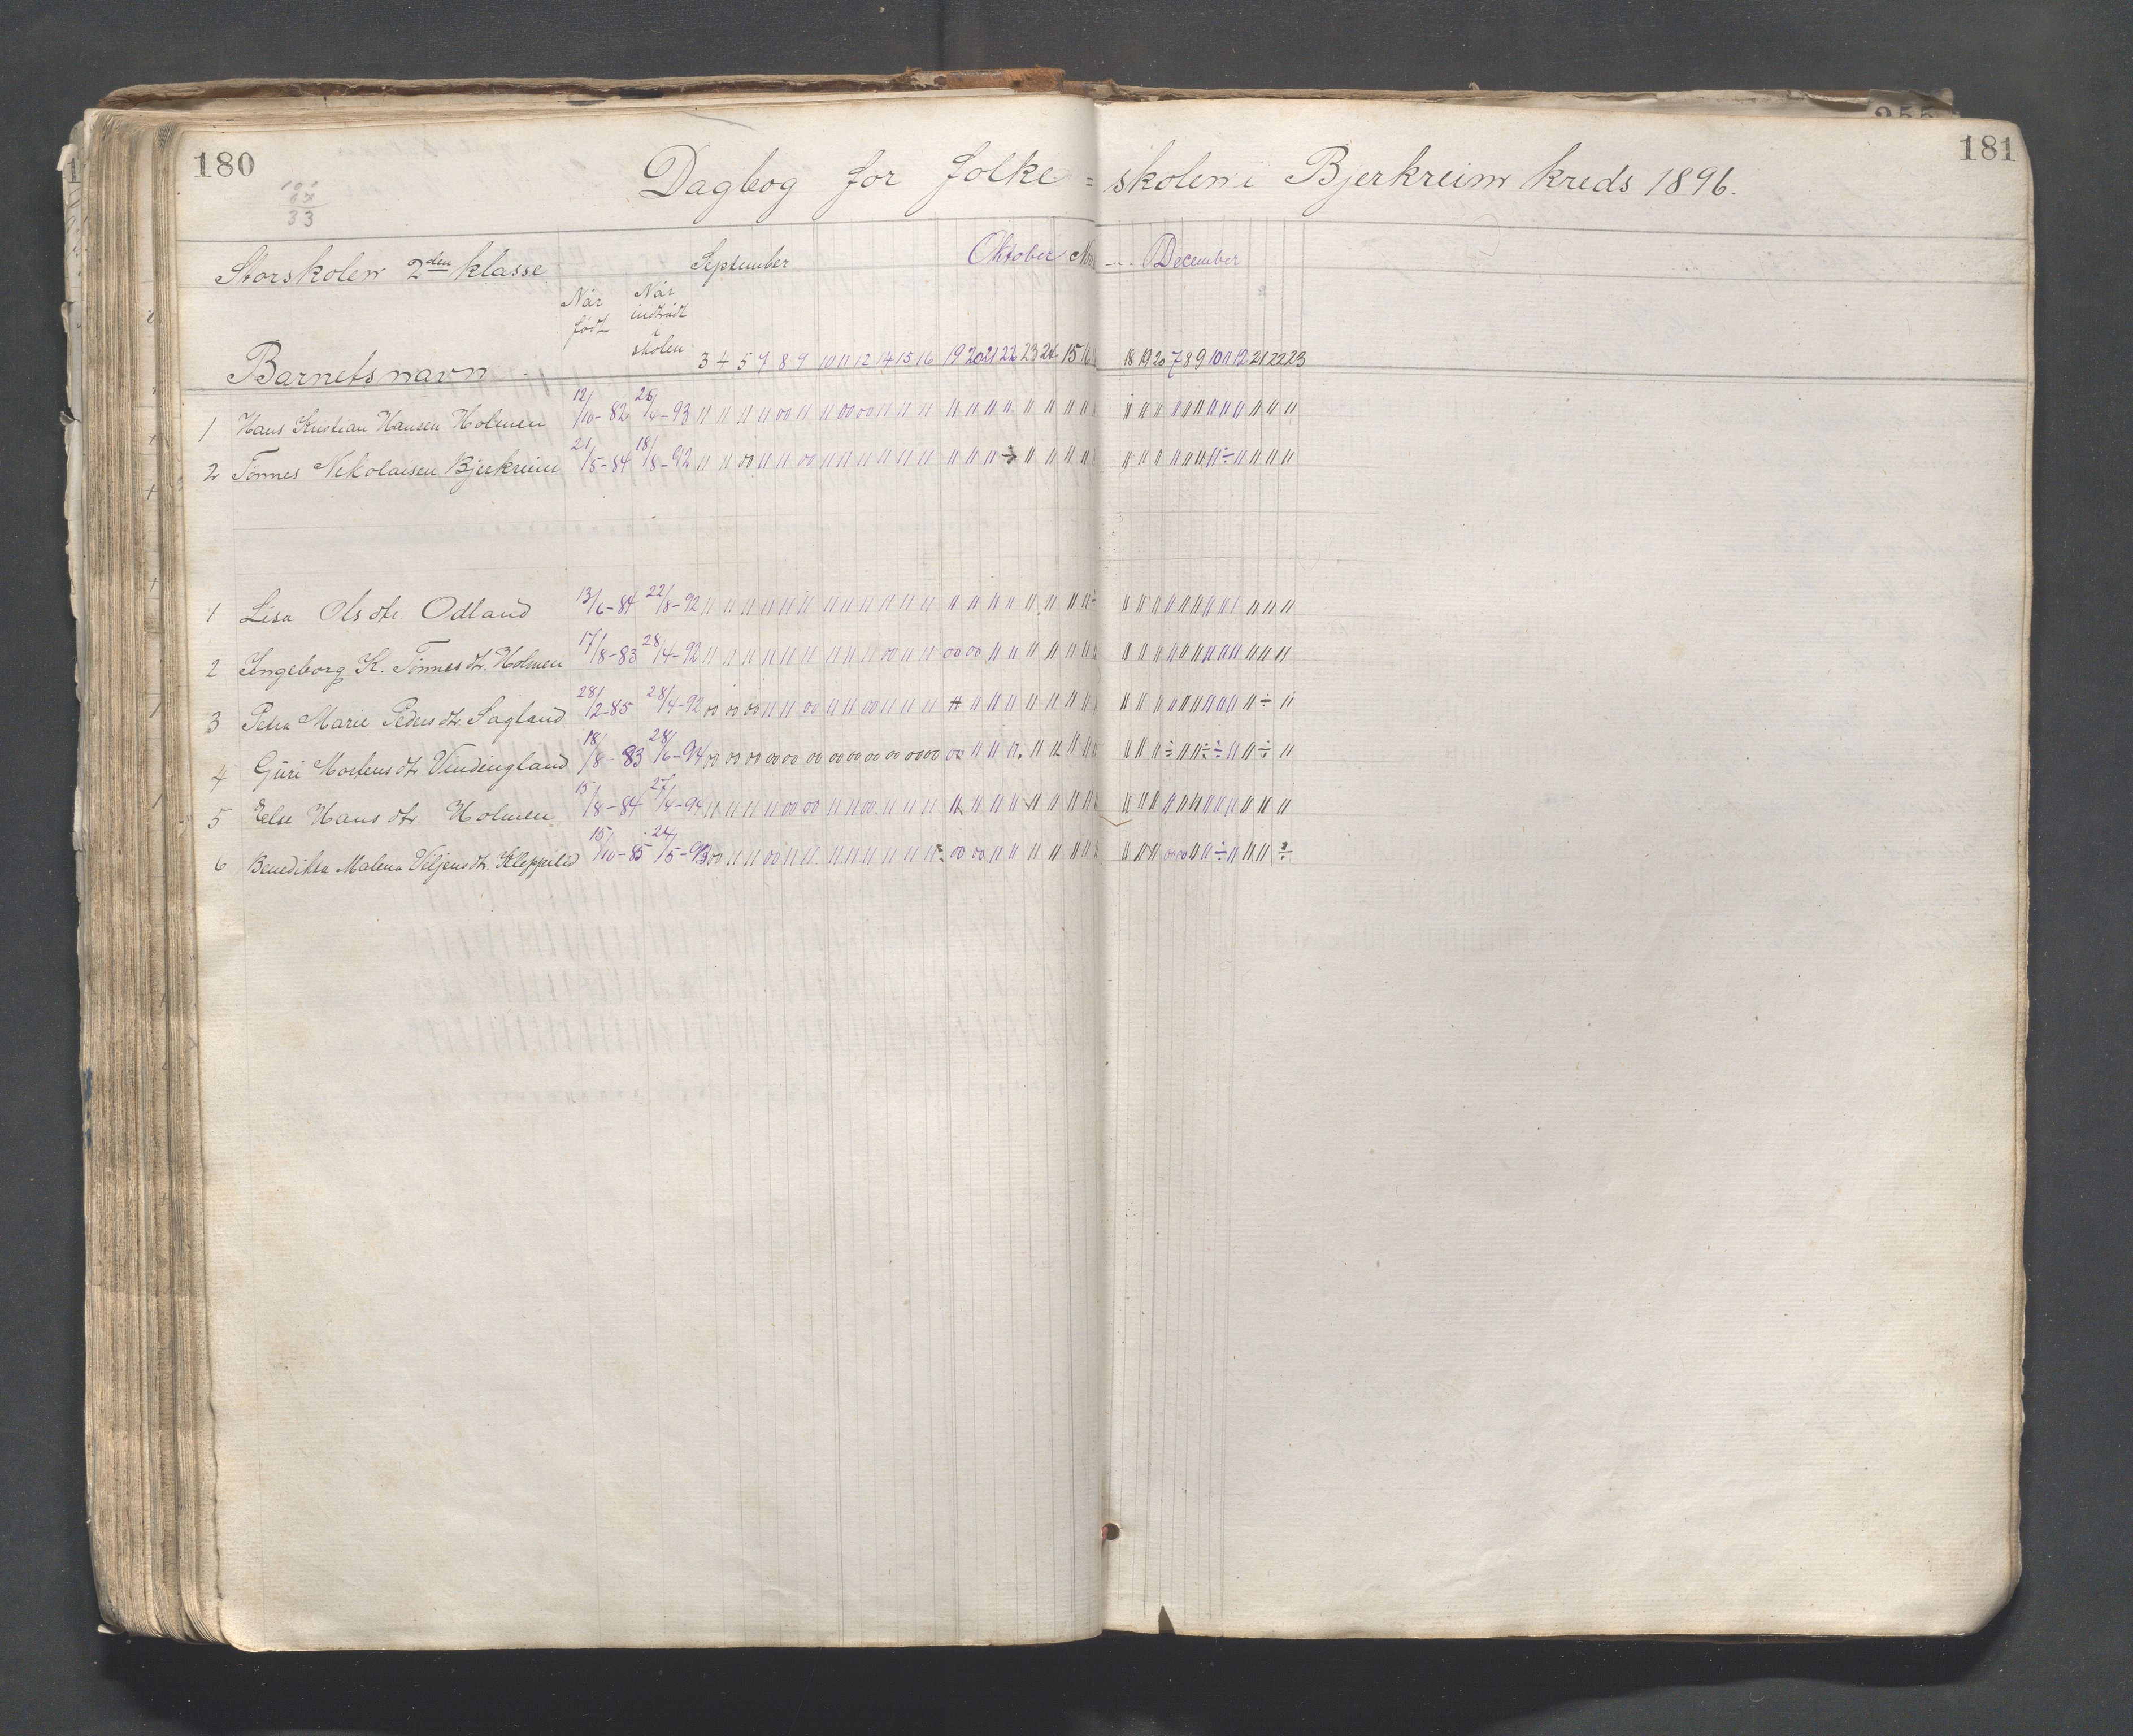 180
181
255
Dagbog for folke=skolen i Bjerkreim kreds 1896.
33
Storskolen 2den klasse
September Oktober Nov. December
Når født
Når indtrådt i skolen
Barnets navn
3 4 5 7 8 9 10 11 12 14 15 16 19 20 21 22 23 24 15 16 18 19 20 7 8 9 10 11 12 21 22 23
1 Hans Kristian Hansen Holmen 12/10-82 26/6-93
2 Tønnes Nikolaisen Bjerkreim 21/5-84 18/8-92
1 Lisa Olsdtr. Odland 13/6-84 22/8-92
2 Ingeborg K. Tønnesdtr. Holmen 17/8-83 28/4-92
3 Petra Marie Pedersdtr Sagland 28/2-85 28/4-92
4 Guri Mortensdtr Vindingland 18/8-83 28/6-94
5 Else Hansdtr Holmen 15/8-84 27/4-94
6 Benedikta Malena Veljensdtr. Kleppelid 15/10-85 24/5-93